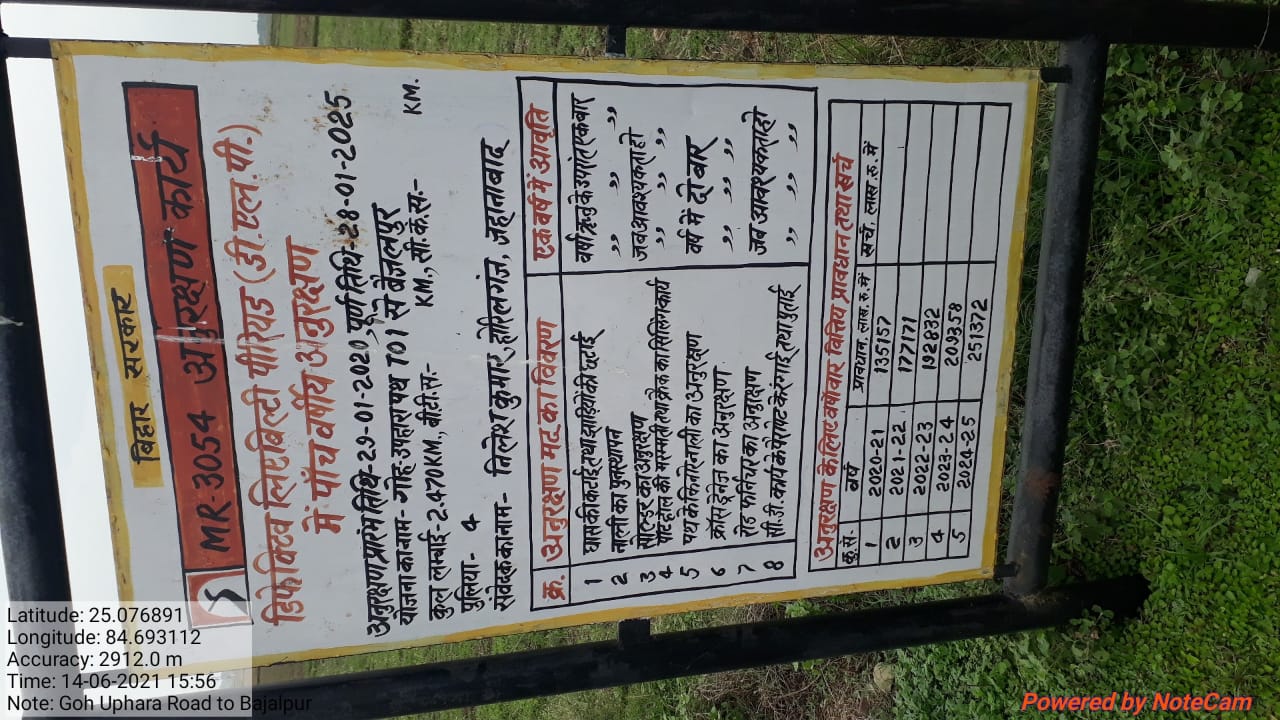 बिहार सरकार
MR-3054 अनुरक्षण कार्य
डिफेक्टिव लिएबिल्टी पीरियड (डी.एल.पी.)
में पाँच वर्षीय अनुरक्षण
अनुरक्षण प्रारंभ तिथि-29-01-2020 पूर्ण तिथि-28-01-2025
योजना का नाम- गोह उपहारा पथ T01 से बैजलपुर
कुल लम्बाई-2.470KM., बी.टी.स:- KM., सी.कं.स:- KM.
पुलिया- 4
संवेदक का नाम- निलेश कुमार, होरिलगंज, जहानाबाद
क्र. अनुरक्षण मद का विवरण एक वर्ष में आवृति
1 घास की कटाई तथा झाड़ियों की छटाई वर्षा ऋतु के उपरांत एक बार
2 नाली का पुनस्थापन ,, ,, ,, ,,
3 सोल्डर का अनुरक्षण जब आवश्यकता हो
4 पॉट होल की मरम्मती तथा क्रैक का सिलिंग कार्य ,, ,, ,, ,,
5 पथ के किनारे नाली का अनुरक्षण वर्ष में दो बार
6 क्रॉस ड्रेनेज का अनुरक्षण ,, ,, ,, ,,
7 रोड फर्निचर का अनुरक्षण जब आवश्यकता हो
8 सी.डी. कार्य के पैरापेट के रंगाई तथा पुताई ,, ,, ,, ,,
अनुरक्षण के लिए वर्षवार वित्तिय प्रावधान तथा खर्च
क्र.सं. वर्ष प्रावधान, लाख. रु. में खर्च. लाख रु. में
1 2020-21 135157
2 2021-22 177171
3 2022-23 192832
4 2023-24 209358
5 2024-25 251372
Latitude: 25.076891
Longitude: 84.693112
Accuracy: 2912.0 m
Time: 14-06-2021 15:56
Note: Goh Uphara Road to Bajalpur
Powered by NoteCam